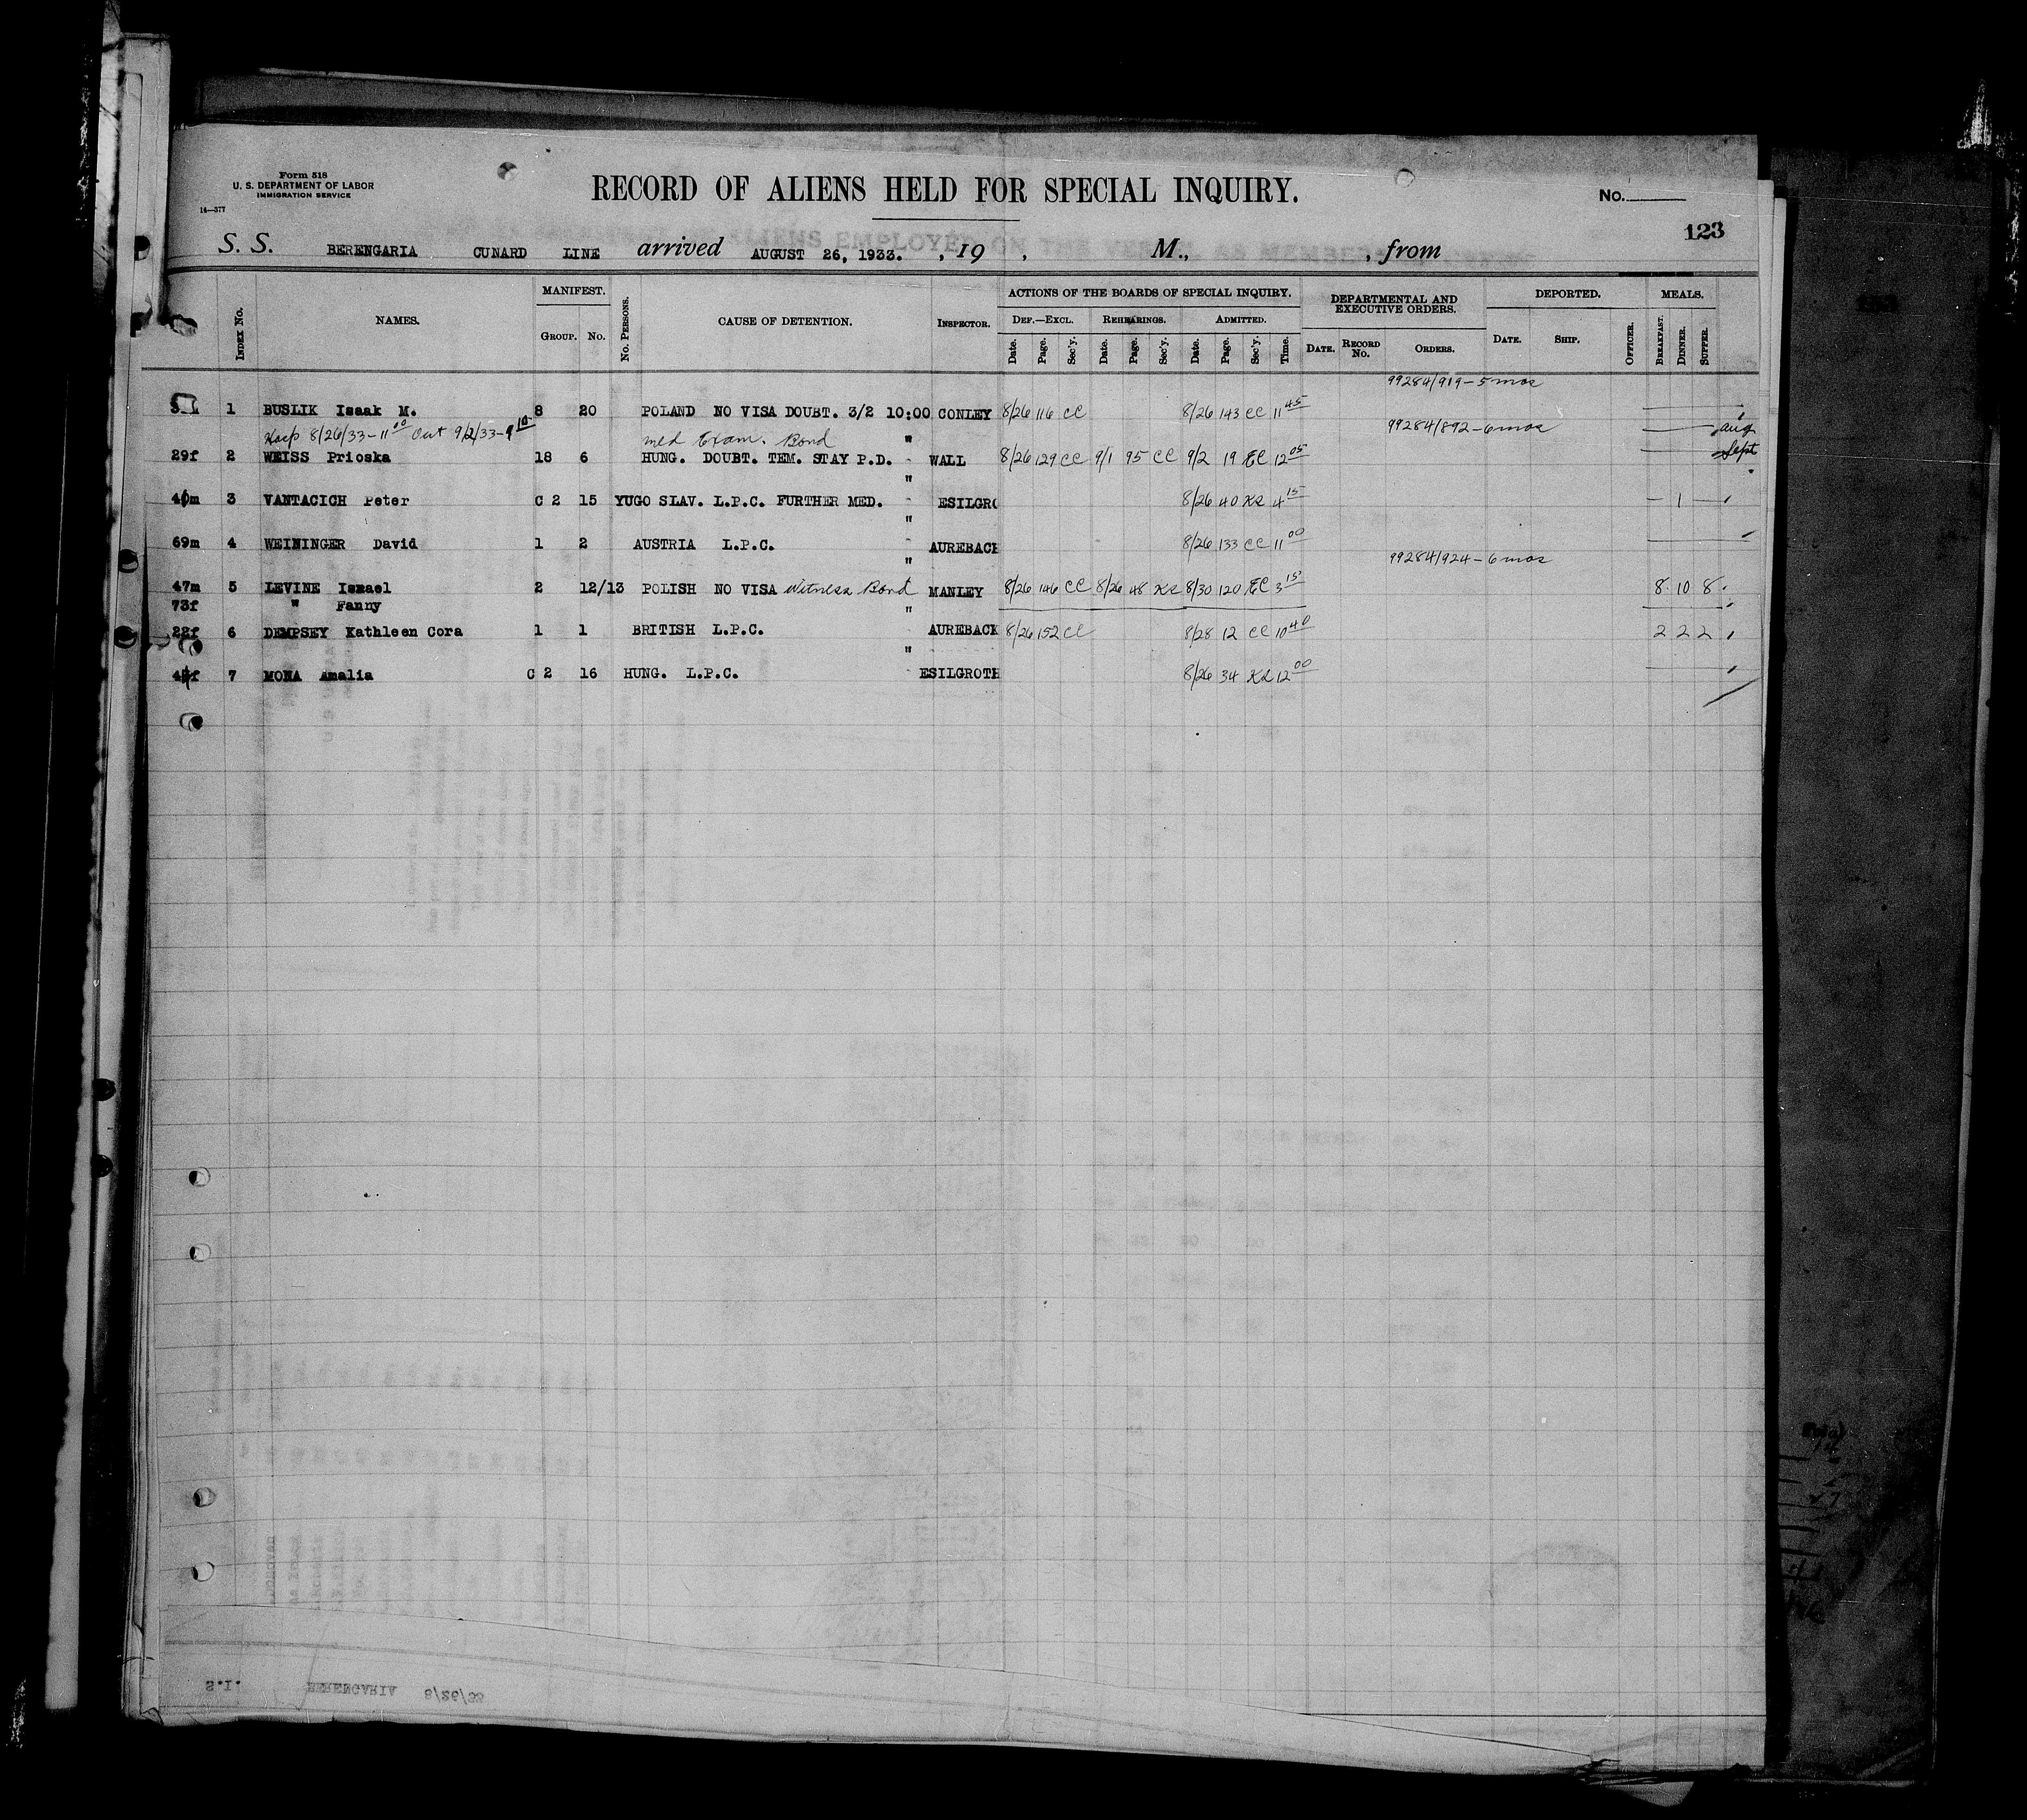 Form 518
U. S. DEPARTMENT OF LABOR
IMMIGRATION SERVICE
14—377
RECORD OF ALIENS HELD FOR SPECIAL INQUIRY.
No.
123
S. S. BERENGARIA CUNARD LINE arrived AUGUST 26, 1933. , 19 , M., , from
INDEX No. NAMES. MANIFEST. GROUP. No. No. PERSONS. CAUSE OF DETENTION. INSPECTOR. ACTIONS OF THE BOARDS OF SPECIAL INQUIRY. DEF.—EXCL. Date. Page. Sec'y. REHEARINGS. Date. Page. Sec'y. ADMITTED. Date. Page. Sec'y. Time. DEPARTMENTAL AND EXECUTIVE ORDERS. DATE. RECORD No. ORDERS. DEPORTED. DATE. SHIP. OFFICER. MEALS. BREAKFAST. DINNER. SUPPER.
99284/919-5 mos
1 BUSLIK Isaak M. 8 20 POLAND NO VISA DOUBT. 3/2 10:00 CONLEY 8/26 116 CC 8/26 143 CC 11 45
Hosp 8/26/33-11 00 Out 9/2/33-9 10 med Exam. Bond " 99284/892-6 mos Aug
29f 2 WEISS Prioska 18 6 HUNG. DOUBT. TEM. STAY P.D. WALL 8/26 129 CC 9/1 95 CC 9/2 19 EC 12 05 Sept
"
3 VANTACICH Peter C 2 15 YUGO SLAV. L.P.C. FURTHER MED. ESILGRO 8/26 40 KR 4 15 – 1 –
"
69m 4 WEININGER David 1 2 AUSTRIA L.P.C. AUREBACH 8/26 133 CC 11 00
" 99284/924-6 mos
47m 5 LEVINE Ismael 2 12/13 POLISH NO VISA Witness Bond MANLEY 8/26 146 CC 8/26 48 KR 8/30 120 EC 3 15 8 10 8
73f " Fanny "
22f 6 DEMPSEY Kathleen Cora 1 1 BRITISH L.P.C. AUREBACK 8/26 152 CC 8/28 12 CC 10 40 2 2 2
"
7 MONA Amalia C 2 16 HUNG. L.P.C. ESILGROTH 8/26 34 KR 12 00
S.I. BERENGARIA 8/26/33